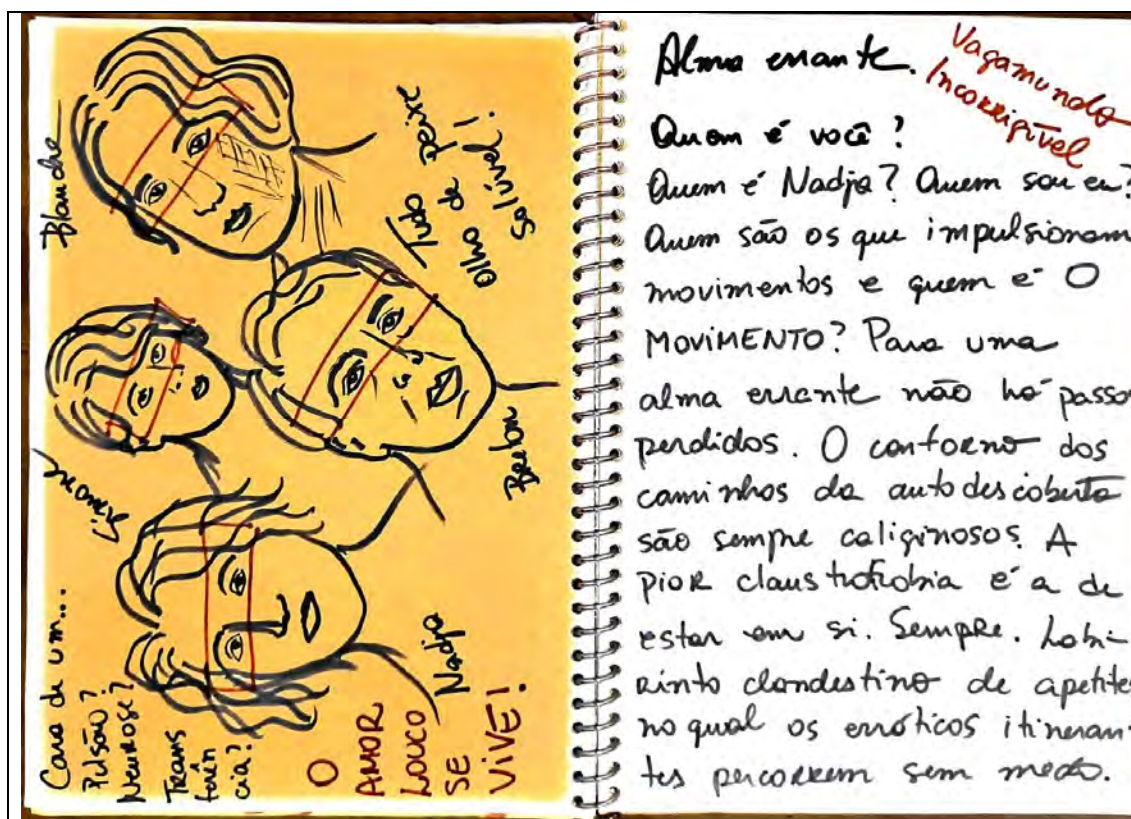 Blanche
Tudo peixe
olho de
solúvel!
Simone
Breton
Nadja
Cara de um...
Pulsão?
Neurose?
Trans
ferên
cia?
O
AMOR
LOUCO
SE
VIVE!
Alma errante.
Vagamundo
Incorrigível
Quem é você?
Quem é Nadja? Quem sou eu?
Quem são os que impulsionam
movimentos e quem é O
MOVIMENTO? Para uma
alma errante não há passos
perdidos. O contorno dos
caminhos da autodescoberta
são sempre caliginosos. A
pior claustrofobia é a de
estar em si. Sempre. Labi-
rinto clandestino de apetites
no qual os erróticos itineran-
tes percorrem sem medo.